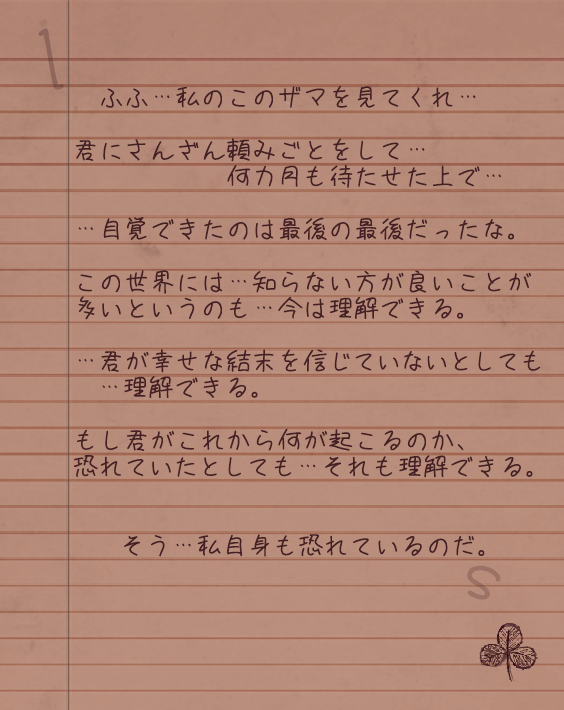 l
ふふ…私のこのザマを見てくれ…
君にさんざん頼みごとをして…
何カ月も待たせた上で…
…自覚できたのは最後の最後だったな。
この世界には…知らない方が良いことが
多いというのも…今は理解できる。
…君が幸せな結末を信じていないとしても
…理解できる。
もし君がこれから何が起こるのか、
恐れていたとしても…それも理解できる。
そう…私自身も恐れているのだ。
s